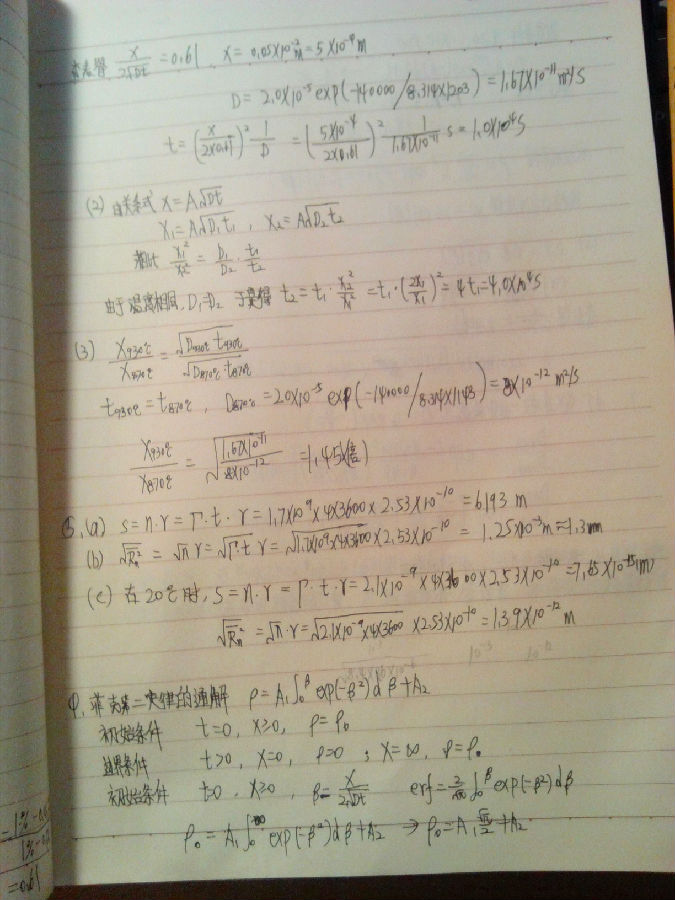 查表得 x/2√Dt = 0.61 . x = 0.05×10⁻²m = 5×10⁻⁴m
D = 2.0×10⁻⁵exp(-140000/8.314×1203) = 1.67×10⁻¹¹m²/S
t = (x/2×0.61)² 1/D = (5×10⁻⁴/2×0.61)² 1/1.67×10⁻¹¹ s = 1.0×10⁴S
(2) 由关系式 x = A√Dt
x₁ = A√D₁t₁ , x₂ = A√D₂t₂
相比 x₁²/x₂² = D₁/D₂ · t₁/t₂
由于温度相同, D₁=D₂ 于是得 t₂ = t₁·x₂²/x₁² = t₁·(2x₁/x₁)² = 4t₁ = 4.0×10⁴S
(3) x930℃/x870℃ = √D930℃ t930℃/√D870℃ t870℃
t930℃ = t870℃ , D870℃ = 2.0×10⁻⁵ exp(-140000/8.314×1143) = 8×10⁻¹² m²/S
x930℃/x870℃ = √1.67×10⁻¹¹/8×10⁻¹² = 1.45(倍)
(a) S = n·r = Γ·t·r = 1.7×10⁹×4×3600×2.53×10⁻¹⁰ = 6193 m
(b) √R̄n² = √n r = √Γ·t r = √1.7×10⁹×4×3600×2.53×10⁻¹⁰ = 1.25×10⁻³m ≈ 1.3mm
(c) 在20℃时, S = n·r = Γ·t·r = 2.1×10⁻⁹×4×3600×2.53×10⁻¹⁰ = 7.65×10⁻¹⁵(m)
√R̄n² = √n·r = √2.1×10⁻⁹×4×3600 ×2.53×10⁻¹⁰ = 1.39×10⁻¹² m
菲克第二定律的通解 ρ = A₁∫₀^β exp(-β²)dβ + A₂
初始条件 t=0, x≥0, ρ=ρ₀
边界条件 t>0, x=0, ρ=0 ; x=∞, ρ=ρ₀
初始条件 t=0 x≥0, β = x/2√Dt erf = 2/√π ∫₀^β exp(-β²)dβ
ρ₀ = A₁∫₀^∞ exp(-β²)dβ + A₂ → ρ₀ = A₁ √π/2 + A₂
=0.61